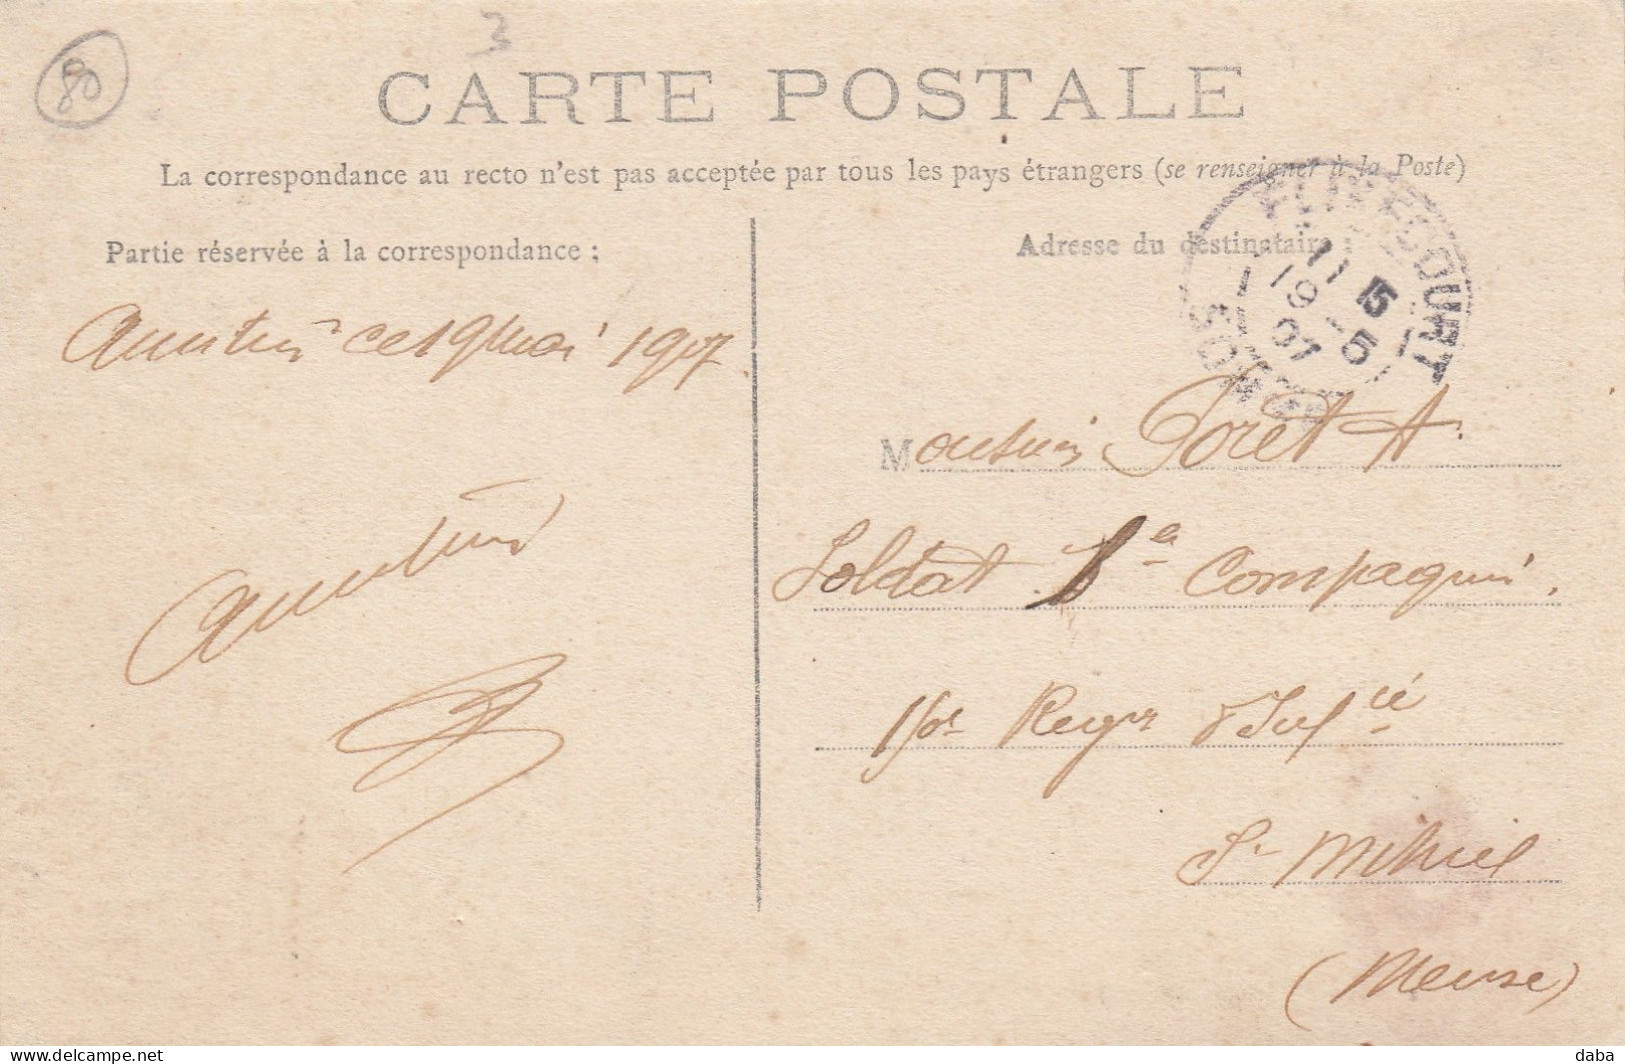 80
3
CARTE POSTALE
La correspondance au recto n'est pas acceptée par tous les pays étrangers (se renseigner à la Poste)
Partie réservée à la correspondance :
Adresse du destinataire
COURT
11 5
19 - 5
07
SOMME
ce 19 mai 1907
Monsieur Poret A.
Soldat 8e Compagnie.
Regt d'Infie
St Mihiel
(Meuse)
delcampe.net
daba